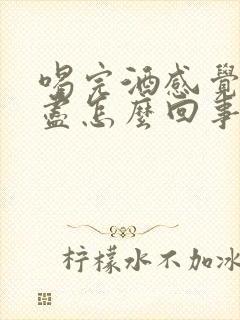 喝完酒感覺
盡怎麼回事
柠檬水不加冰